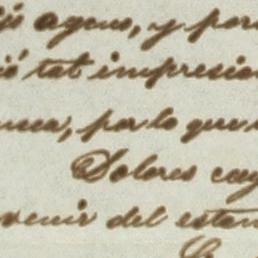 ageno, y por
tal impresio
, por lo que
Dolores
venir del estan